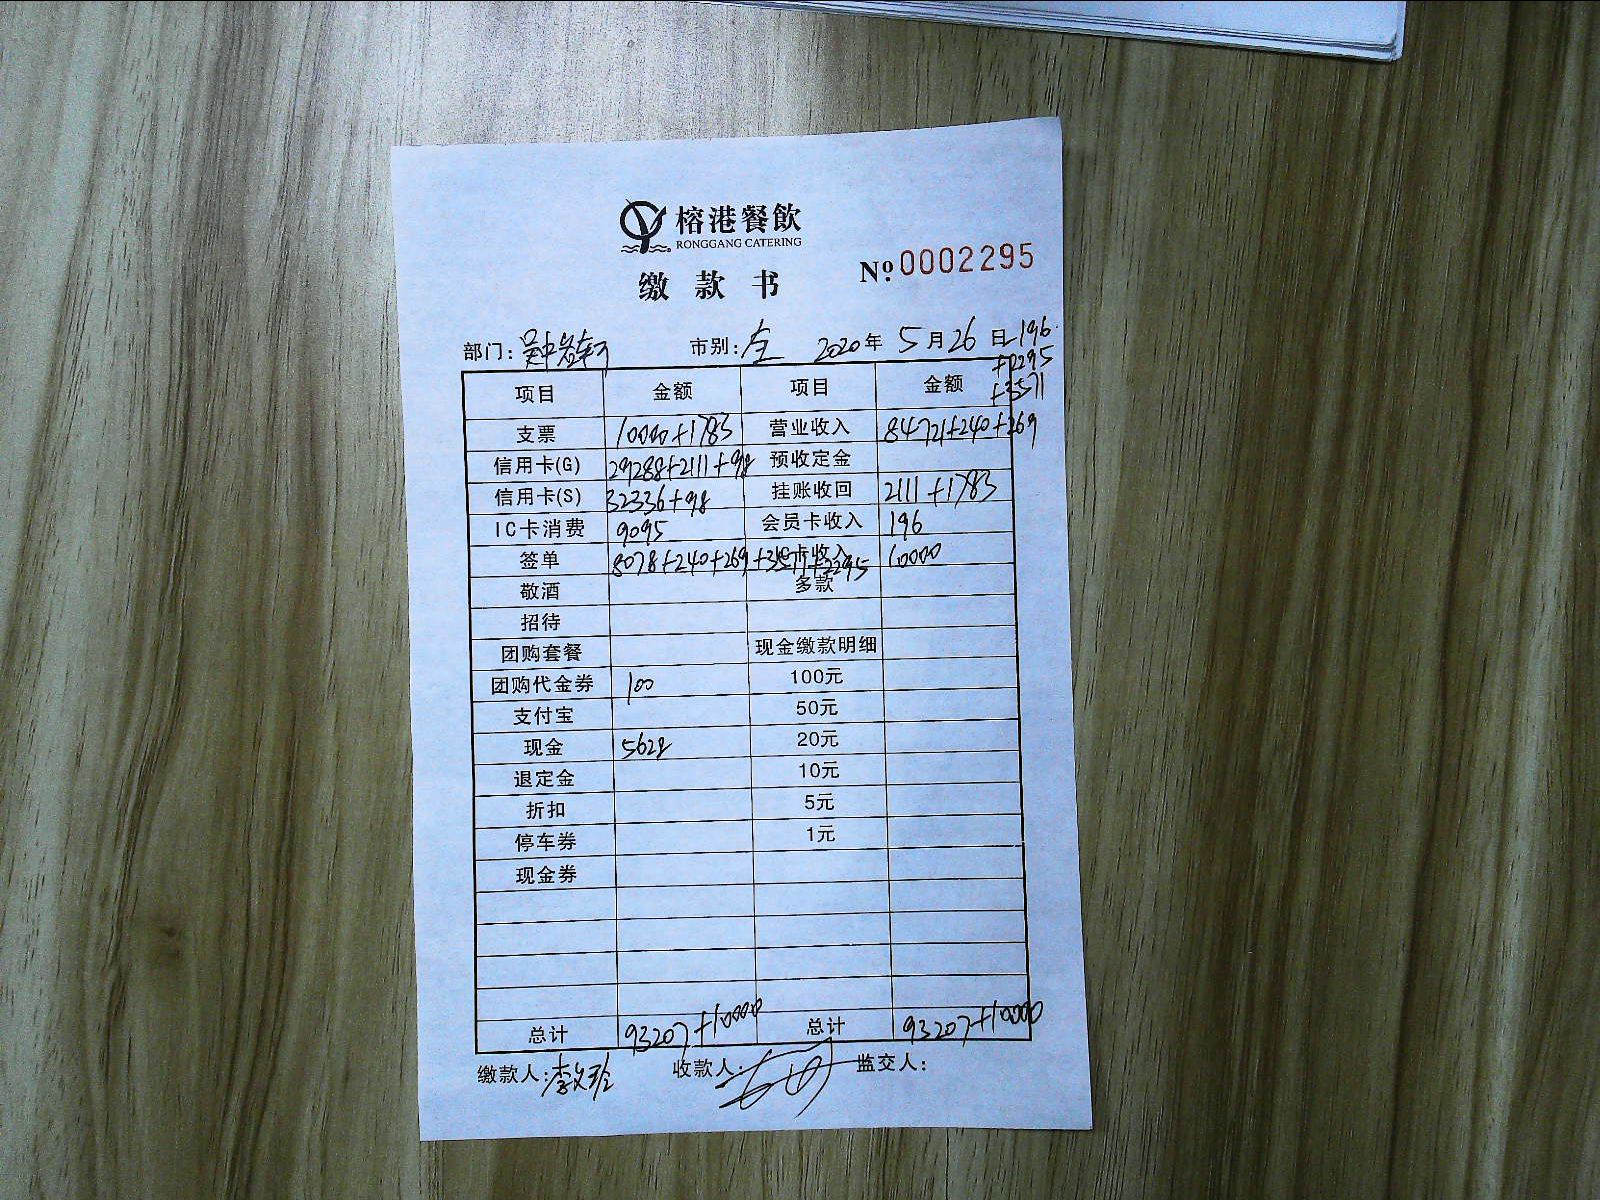 榕港餐飲
RONGGANG CATERING
缴款书
Nº 0002295
部门: 市别: 全 2020年 5月26日 196
+2295
+3571
项目 金额 项目 金额
支票 10000+1783 营业收入 84721+240+269
信用卡(G) 29288+2111+98 预收定金
信用卡(S) 32336+98 挂账收回 2111+1783
IC卡消费 9095 会员卡收入 196
签单 8078+240+269+3571+2295 IC卡收入 10000
敬酒 多款
招待
团购套餐 现金缴款明细
团购代金券 100 100元
支付宝 50元
现金 5628 20元
退定金 10元
折扣 5元
停车券 1元
现金券
总计 93207+10000 总计 93207+10000
缴款人: 收款人: 监交人: